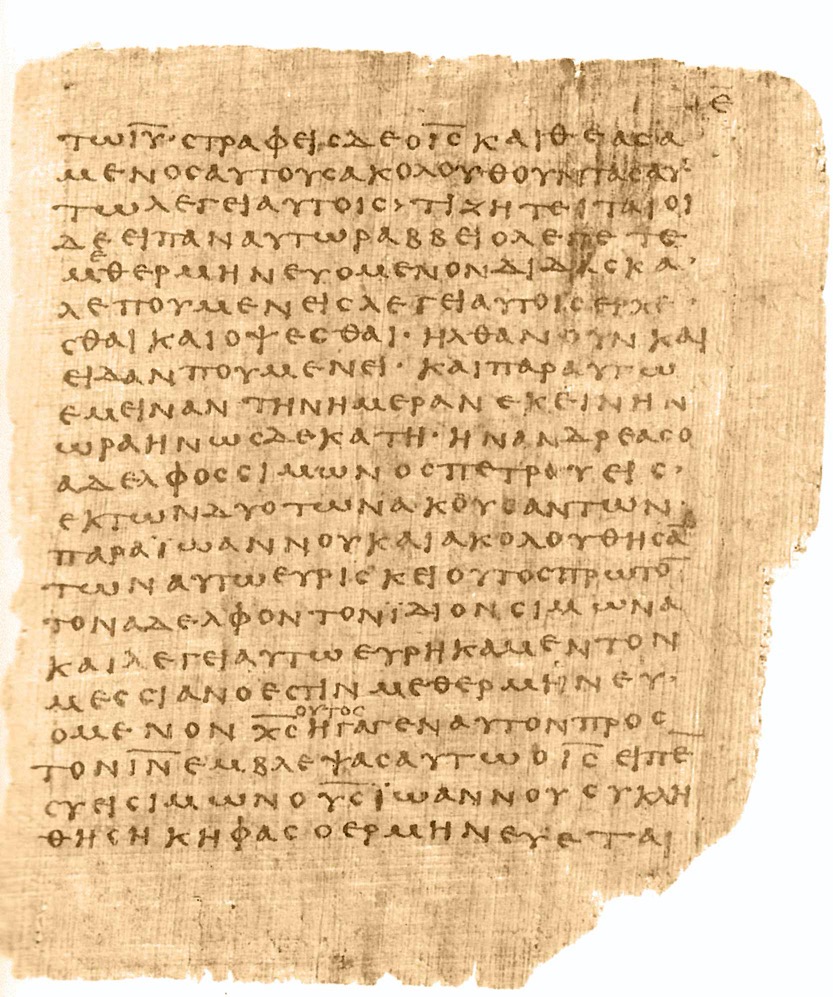 Ε
ΤΩΙΥ̅·ϹΤΡΑΦΕΙϹΔΕΟΙϹ̅ΚΑΙΘΕΑϹΑ
ΜΕΝΟϹΑΥΤΟΥϹΑΚΟΛΟΥΘΟΥΝΤΑϹΑΥ
ΤΩΛΕΓΕΙΑΥΤΟΙϹ›ΤΙΖΗΤΕΙΤΑΙΟΙ
ΔΕΕΙΠΑΝΑΥΤΩΡΑΒΒΕΙΟΛΕΓΕΤΕ
ΜΕΘΕΡΜΗΝΕΥΟΜΕΝΟΝΔΙΔΑϹΚΑ·
ΛΕΠΟΥΜΕΝΕΙϹΛΕΓΕΙΑΥΤΟΙϹΕΡΧΕ·
ϹΘΑΙΚΑΙΟΨΕϹΘΑΙ·ΗΛΘΑΝΟΥΝΚΑΙ
ΕΙΔΑΝΠΟΥΜΕΝΕΙ·ΚΑΙΠΑΡΑΥΤΩ
ΕΜΕΙΝΑΝΤΗΝΗΜΕΡΑΝΕΚΕΙΝΗΝ
ΩΡΑΗΝΩϹΔΕΚΑΤΗ·ΗΝΑΝΔΡΕΑϹΟ
ΑΔΕΛΦΟϹϹΙΜΩΝΟϹΠΕΤΡΟΥΕΙϹ·
ΕΚΤΩΝΔΥΟΤΩΝΑΚΟΥϹΑΝΤΩΝ·
ΠΑΡΑΪΩΑΝΝΟΥΚΑΙΑΚΟΛΟΥΘΗϹΑ̅
ΤΩΝΑΥΤΩΕΥΡΙϹΚΕΙΟΥΤΟϹΠΡΩΤΟ̅
ΤΟΝΑΔΕΛΦΟΝΤΟΝΪΔΙΟΝϹΙΜΩΝΑ
ΚΑΙΛΕΓΕΙΑΥΤΩΕΥΡΗΚΑΜΕΝΤΟΝ
ΜΕϹϹΙΑΝΟΕϹΤΙΝΜΕΘΕΡΜΗΝΕΥ·
ΟΜΕΝΟΝΧ̅Ϲ̅ΟΥΤΟϹΗΓΑΓΕΝΑΥΤΟΝΠΡΟϹ
ΤΟΝΙ̅Ν̅ΕΜΒΛΕΨΑϹΑΥΤΩΟΙ̅Ϲ̅ΕΙΠΕ
ϹΥΕΙϹΙΜΩΝΟΥ̅Ϲ̅ΪΩΑΝΝΟΥϹΥΚΛΗ
ΘΗϹΗΚΗΦΑϹΟΕΡΜΗΝΕΥΕΤΑΙ